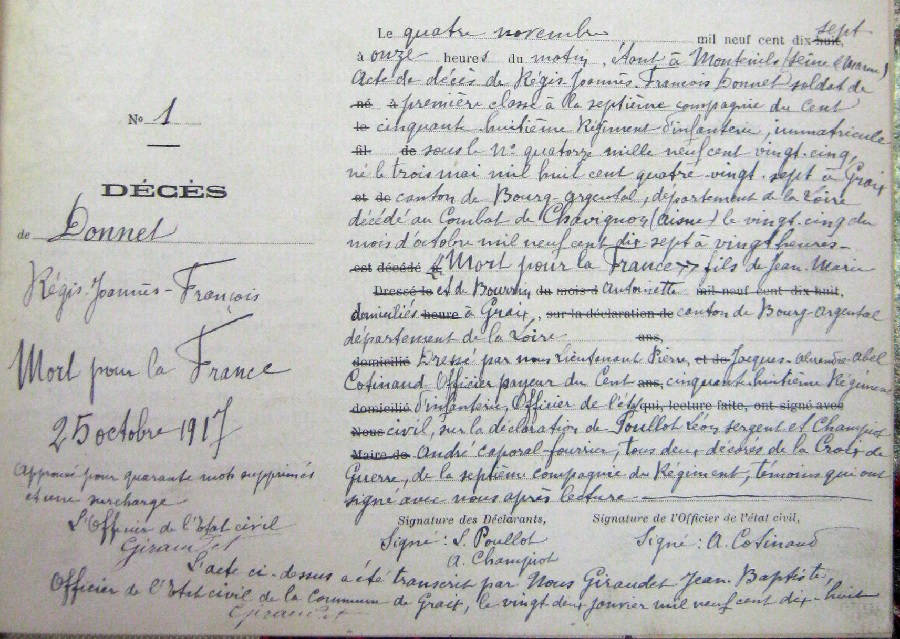 No 1
DÉCÈS
de Donnet
Régis-Joannès-François
Mort pour la France
25 octobre 1917
Approuvé pour quarante mots supprimés
et une surcharge
L'Officier de l'Etat civil
Giraudet
Le quatre novembre mil neuf cent dix-huit, sept
à onze heures du matin, étant à Monteuils (Seine & Marne)
Acte de décès de Régis-Joannès-François Donnet soldat de
né à première classe à la septième compagnie du Cent
le cinquante huitième Régiment d'infanterie, immatriculé
fil de sous le No quatorze mille neuf cent vingt-cinq,
né le trois mai mil huit cent quatre-vingt-sept à Graix
et de canton de Bourg-argental, département de la Loire
décédé au Combat de Chavignon (Aisne) le vingt-cinq du
mois d'octobre mil neuf cent dix sept à vingt heures-
est décédé "Mort pour la France" fils de Jean-Marie
Dressé le et de Bourrin du mois d Antoinette mil neuf cent dix-huit,
domiciliés heure à Graix, sur la déclaration de canton de Bourg-Argental
département de la Loire ans,
domicilié Dressé par nous Lieutenant Pierre, et de Jacques-Alexandre-Abel
Cotinaud Officier payeur du Cent ans, cinquante huitième Régiment
domicilié d'infanterie, Officier de l'état qui, lecture faite, ont signé avec
Nous civil, sur la déclaration de Poullot Léon sergent et Champiot
Maire de André caporal-fourrier, tous deux, décorés de la Croix de
Guerre, de la septième compagnie du Régiment, témoins qui ont
signé avec nous après lecture.
Signature des Déclarants, Signature de l'Officier de l'état civil,
Signé : L. Poullot Signé : A. Cotinaud
A. Champiot
L'acte ci-dessus a été transcrit par Nous Giraudet Jean-Baptiste,
Officier de l'Etat civil de la Commune de Graix, le vingt deux janvier mil neuf cent dix-huit
Giraudet